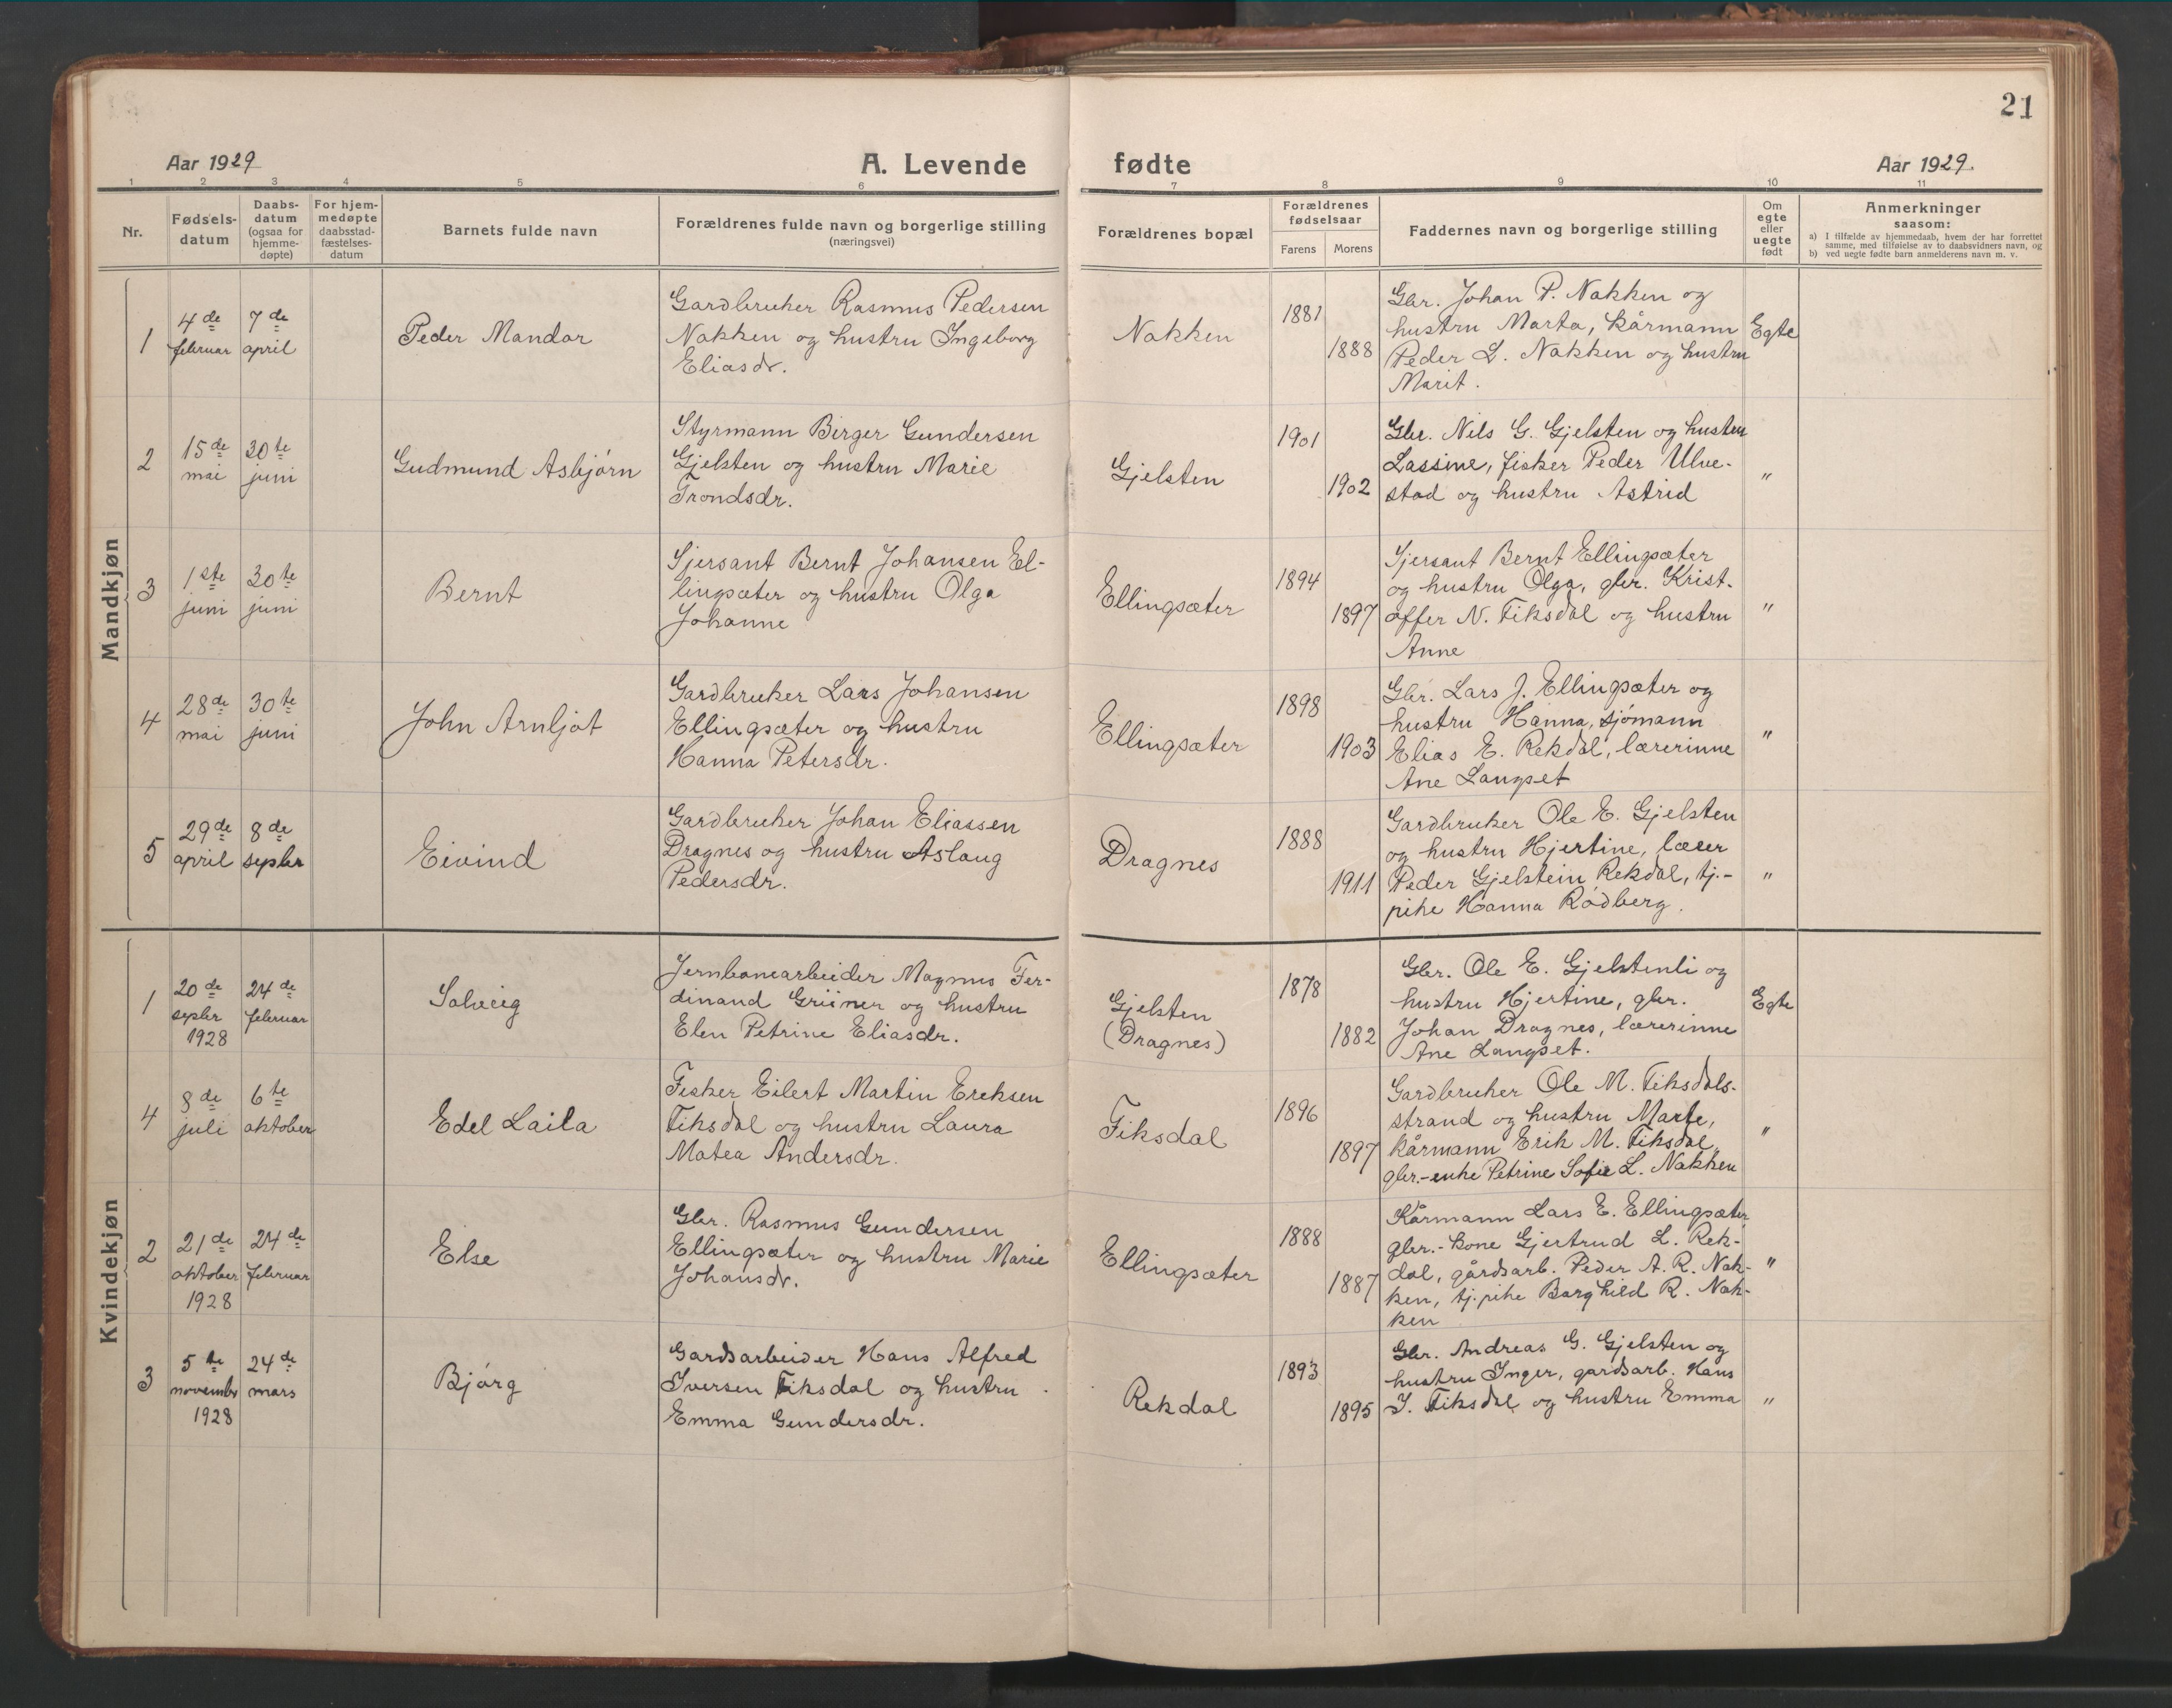 21
Aar 1929
A. Levende fødte
Aar 1929.
1 2 3 4 5 6 7 8 9 10 11
Nr.
Fødsels-
datum
Daabs-
datum
(ogsaa for
hjemme-
døpte)
For hjem-
medøpte
daabsstad-
fæstelses-
datum
Barnets fulde navn
Forældrenes fulde navn og borgerlige stilling
(næringsvei)
Forældrenes bopæl
Forældrenes
fødselsaar
Farens Morens
Faddernes navn og borgerlige stilling
Om
egte
eller
uegte
født
Anmerkninger
saasom:
a) I tilfælde av hjemmedaab, hvem der har forrettet
samme, med tilføielse av to daabsvidners navn, og
b) ved uegte fødte barn anmelderens navn m. v.
Mandkjøn
1
4de
februar
7de
april
Peder Mandor
Gardbruker Rasmus Pedersen
Nakken og hustru Ingeborg
Eliasdr.
Nakken
1881
1888
Gbr. Johan P. Nakken og
hustru Marta, kårmann
Peder L. Nakken og hustru
Marit.
Egte
2
15de
mai
30te
juni
Gudmund Asbjørn
Styrmann Birger Gundersen
Gjelsten og hustru Marie
Trondsdr.
Gjelsten
1901
1902
Gbr. Nils G. Gjelsten og hustru
Lassine, fisker Peder Ulve-
stad og hustru Astrid
"
3
1ste
juni
30te
juni
Bernt
Sjersant Bernt Johansen El-
lingsæter og hustru Olga
Johanne
Ellingsæter
1894
1897
Sjersant Bernt Ellingsæter
og hustru Olga, gbr. Krist-
offer N. Fiksdal og hustru
Anne
"
4
28de
mai
30te
juni
John Arnljot
Gardbruker Lars Johansen
Ellingsæter og hustru
Hanna Petersdr.
Ellingsæter
1898
1903
Gbr. Lars J. Ellingsæter og
hustru Hanna, sjømann
Elias E. Rekdal, lærerinne
Ane Langset
"
5
29de
april
8de
septbr
Eivind
Gardbruker Johan Eliassen
Dragnes og hustru Aslaug
Pedersdr.
Dragnes
1888
1911
Gardbruker Ole E. Gjelsten
og hustru Hjertine, lærer
Peder Gjelstein Rekdal, tj.-
pike Hanna Rødberg.
"
Kvindekjøn
1
20de
septbr
1928
24de
februar
Solveig
Jernbanearbeider Magnus Fer-
dinand Grüner og hustru
Elen Petrine Eliasdr.
Gjelsten
(Dragnes)
1878
1882
Gbr. Ole E. Gjelstenli og
hustru Hjertine, gbr.
Johan Dragnes, lærerinne
Ane Langset.
Egte
4
8de
juli
6te
oktober
Edel Laila
Fisker Eilert Martin Eriksen
Fiksdal og hustru Laura
Matea Andersdr.
Fiksdal
1896
1897
Gardbruker Ole M. Fiksdals-
strand og hustru Marte,
kårmann Erik M. Fiksdal,
gbr.-enke Petrine Sofie L. Nakken
"
2
21de
oktober
1928
24de
februar
Else
Gbr. Rasmus Gundersen
Ellingsæter og hustru Marie
Johansdr.
Ellingsæter
1888
1887
Kårmann Lars E. Ellingsæter
gbr.-kone Gjertrud L. Rek-
dal, gårdsarb. Peder A. R. Nak-
ken, tj.pike Borghild R. Nak-
ken
"
3
5te
novembr
1928
24de
mars
Bjørg
Gardsarbeider Hans Alfred
Iversen Fiksdal og hustru
Emma Gundersdr.
Rekdal
1893
1895
Gbr. Andreas G. Gjelsten og
hustru Inger, gardsarb. Hans
I. Fiksdal og hustru Emma
"